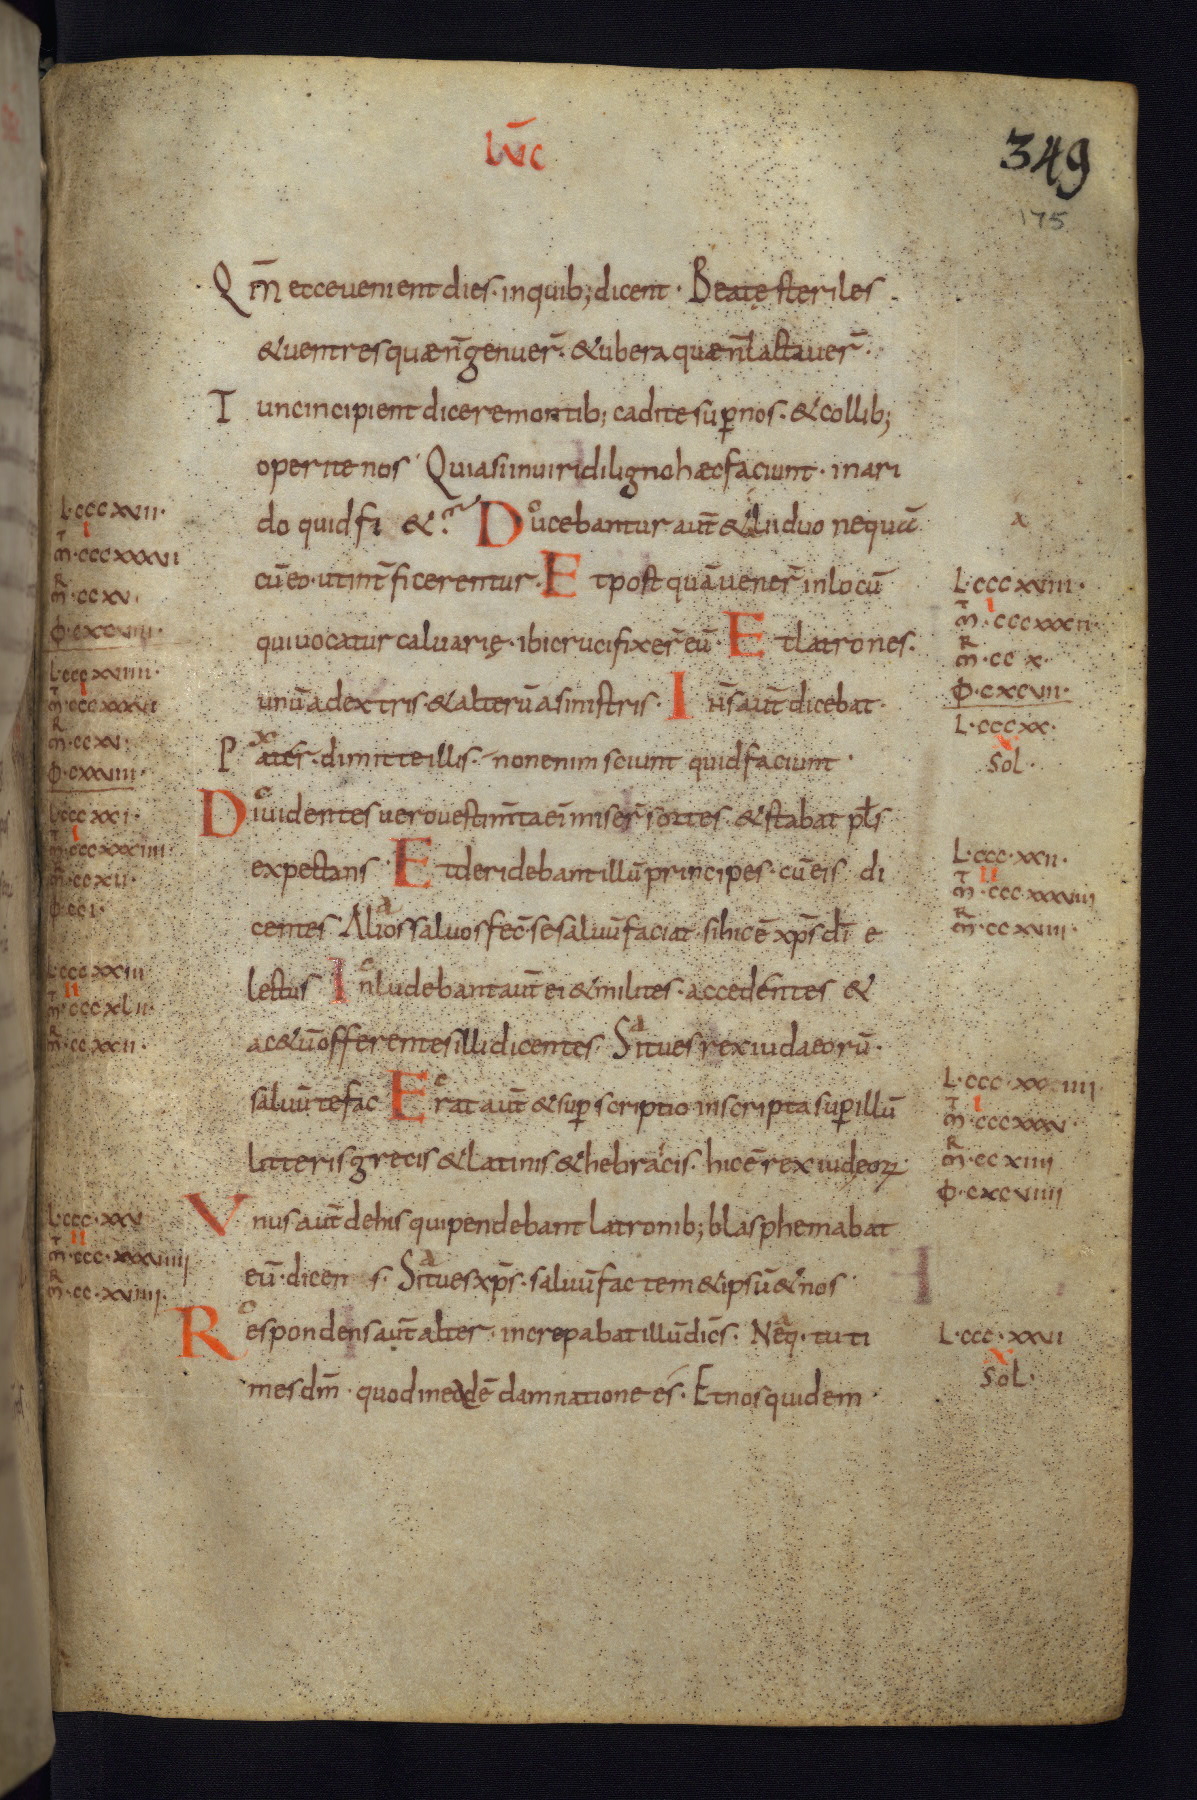 lūc
349
175
Qm̄ ecce venient dies · in quib; dicent · Beatę steriles ·
& ventres quæ n̄ genuer̄ · & ubera quæ n̄ lactauer̄ ·
Tunc incipient dicere montib; cadite sup nos · & collib;
operite nos · Quia si in uiridi ligno hæc faciunt · in ari
do quid fi &
Ducebantur aut̄ & alii duo nequā
cū eo · ut int̄ficerentur · Et postquā uener̄ in locū
qui uocatur caluarię · ibi crucifixer̄ eū · Et latrones ·
unū a dextris · & alterū a sinistris · Ih̄s aut̄ dicebat ·
Pater · dimitte illis · non enim sciunt quid faciunt ·
Diuidentes uero uestim̄ta ei miser̄ sortes · & stabat pl̄s
expectans · Et deridebant illū principes · cū eis di
centes · Alios saluos fec̄ · se saluū faciat · si hic ē xp̄s dī e
lectus · Inludebant aut̄ ei & milites · accedentes &
ac&ū offerentes illi dicentes · Si tu es rex iudaeorū ·
saluū te fac · Erat aut̄ & sup scriptio inscripta sup illū
litteris grecis & latinis & hebraicis · hic ē rex iudęoꝝ ·
Vnus aut̄ de his qui pendebant latronib; blasphemabat
eū · dicen s · Si tu es xp̄s · saluū fac tem&ipsū & nos ·
Respondens aut̄ alter · increpabat illū dic̄s · Neq · tu ti
mes dm̄ · quod in eadē damnatione es · Et nos quidem ·
L·cccxvii·
i
m̄·cccxxxvi
m̄·ccxv·
L·cccxviiii·
i
m̄·ccxv·
Φ·cxxviii·
L·cccxxi·
i
m̄·cccxxxiiii·
m̄·ccxii·
Φ·cci·
L·cccxxiii
ii
m̄·cccxlii·
m̄·ccxxii·
L·ccc·xxv
ii
m̄·ccc·xxxviiii
m̄·cc·xviiii·
x
L·cccxviii·
i
m̄·cccxxxii·
m̄·cc x·
Φ·cxcvii·
L·cccxx·
x
Sol·
L·ccc·xxii·
ii
m̄·ccc·xxxviii
m̄·ccxviii·
i
m̄·cccxxxv·
m̄·ccxiiii
Φ·cxcviiii
L·ccc·xxvi
x
Sol·